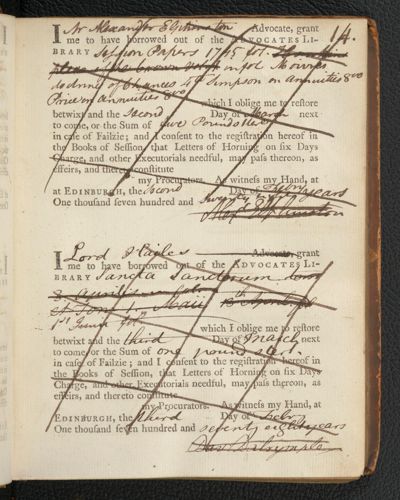 14.
I Mr Alexander Elphinston Advocate, grant
me to have borrowed out of the ADVOCATES LI-
BRARY Session Papers 1745 fol.
in fol. Moivres
doctrine of Chances 4to Simpson on Annuities 8vo
Price on annuities 8vo which I oblige me to restore
betwixt and the Second Day of March next
to come, or the Sum of five Pounds ster
in case of Failzie; and I consent to the registration hereof in
the Books of Session, that Letters of Horning on six Days
Charge, and other Executorials needful, may pass thereon, as
effeirs, and thereto constitute
my Procurators. As witness my Hand, at
at EDINBURGH, the Second Day of Febry
One thousand seven hundred and seventy years
Elphinston
I Lord Hailes Advocate, grant
me to have borrowed out of the ADVOCATES LI-
BRARY Sancta Sanctorum
Maii
1st Junii fol. which I oblige me to restore
betwixt and the third Day of March next
to come, or the Sum of one pound ster
in case of Failzie; and I consent to the registration hereof in
the Books of Session, that Letters of Horning on six Days
Charge, and other Executorials needful, may pass thereon, as
effeirs, and thereto constitute
my Procurators. As witness my Hand, at
EDINBURGH, the third Day of Febry
One thousand seven hundred and seventy eight years
Dav. Dalrymple